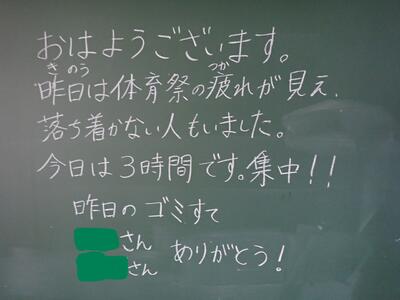 おはようございます。
きのう つか
昨日は体育祭の疲れが見え、
落ち着かない人もいました。
今日は3時間です。集中!!
昨日のゴミすて
さん
さん
ありがとう!